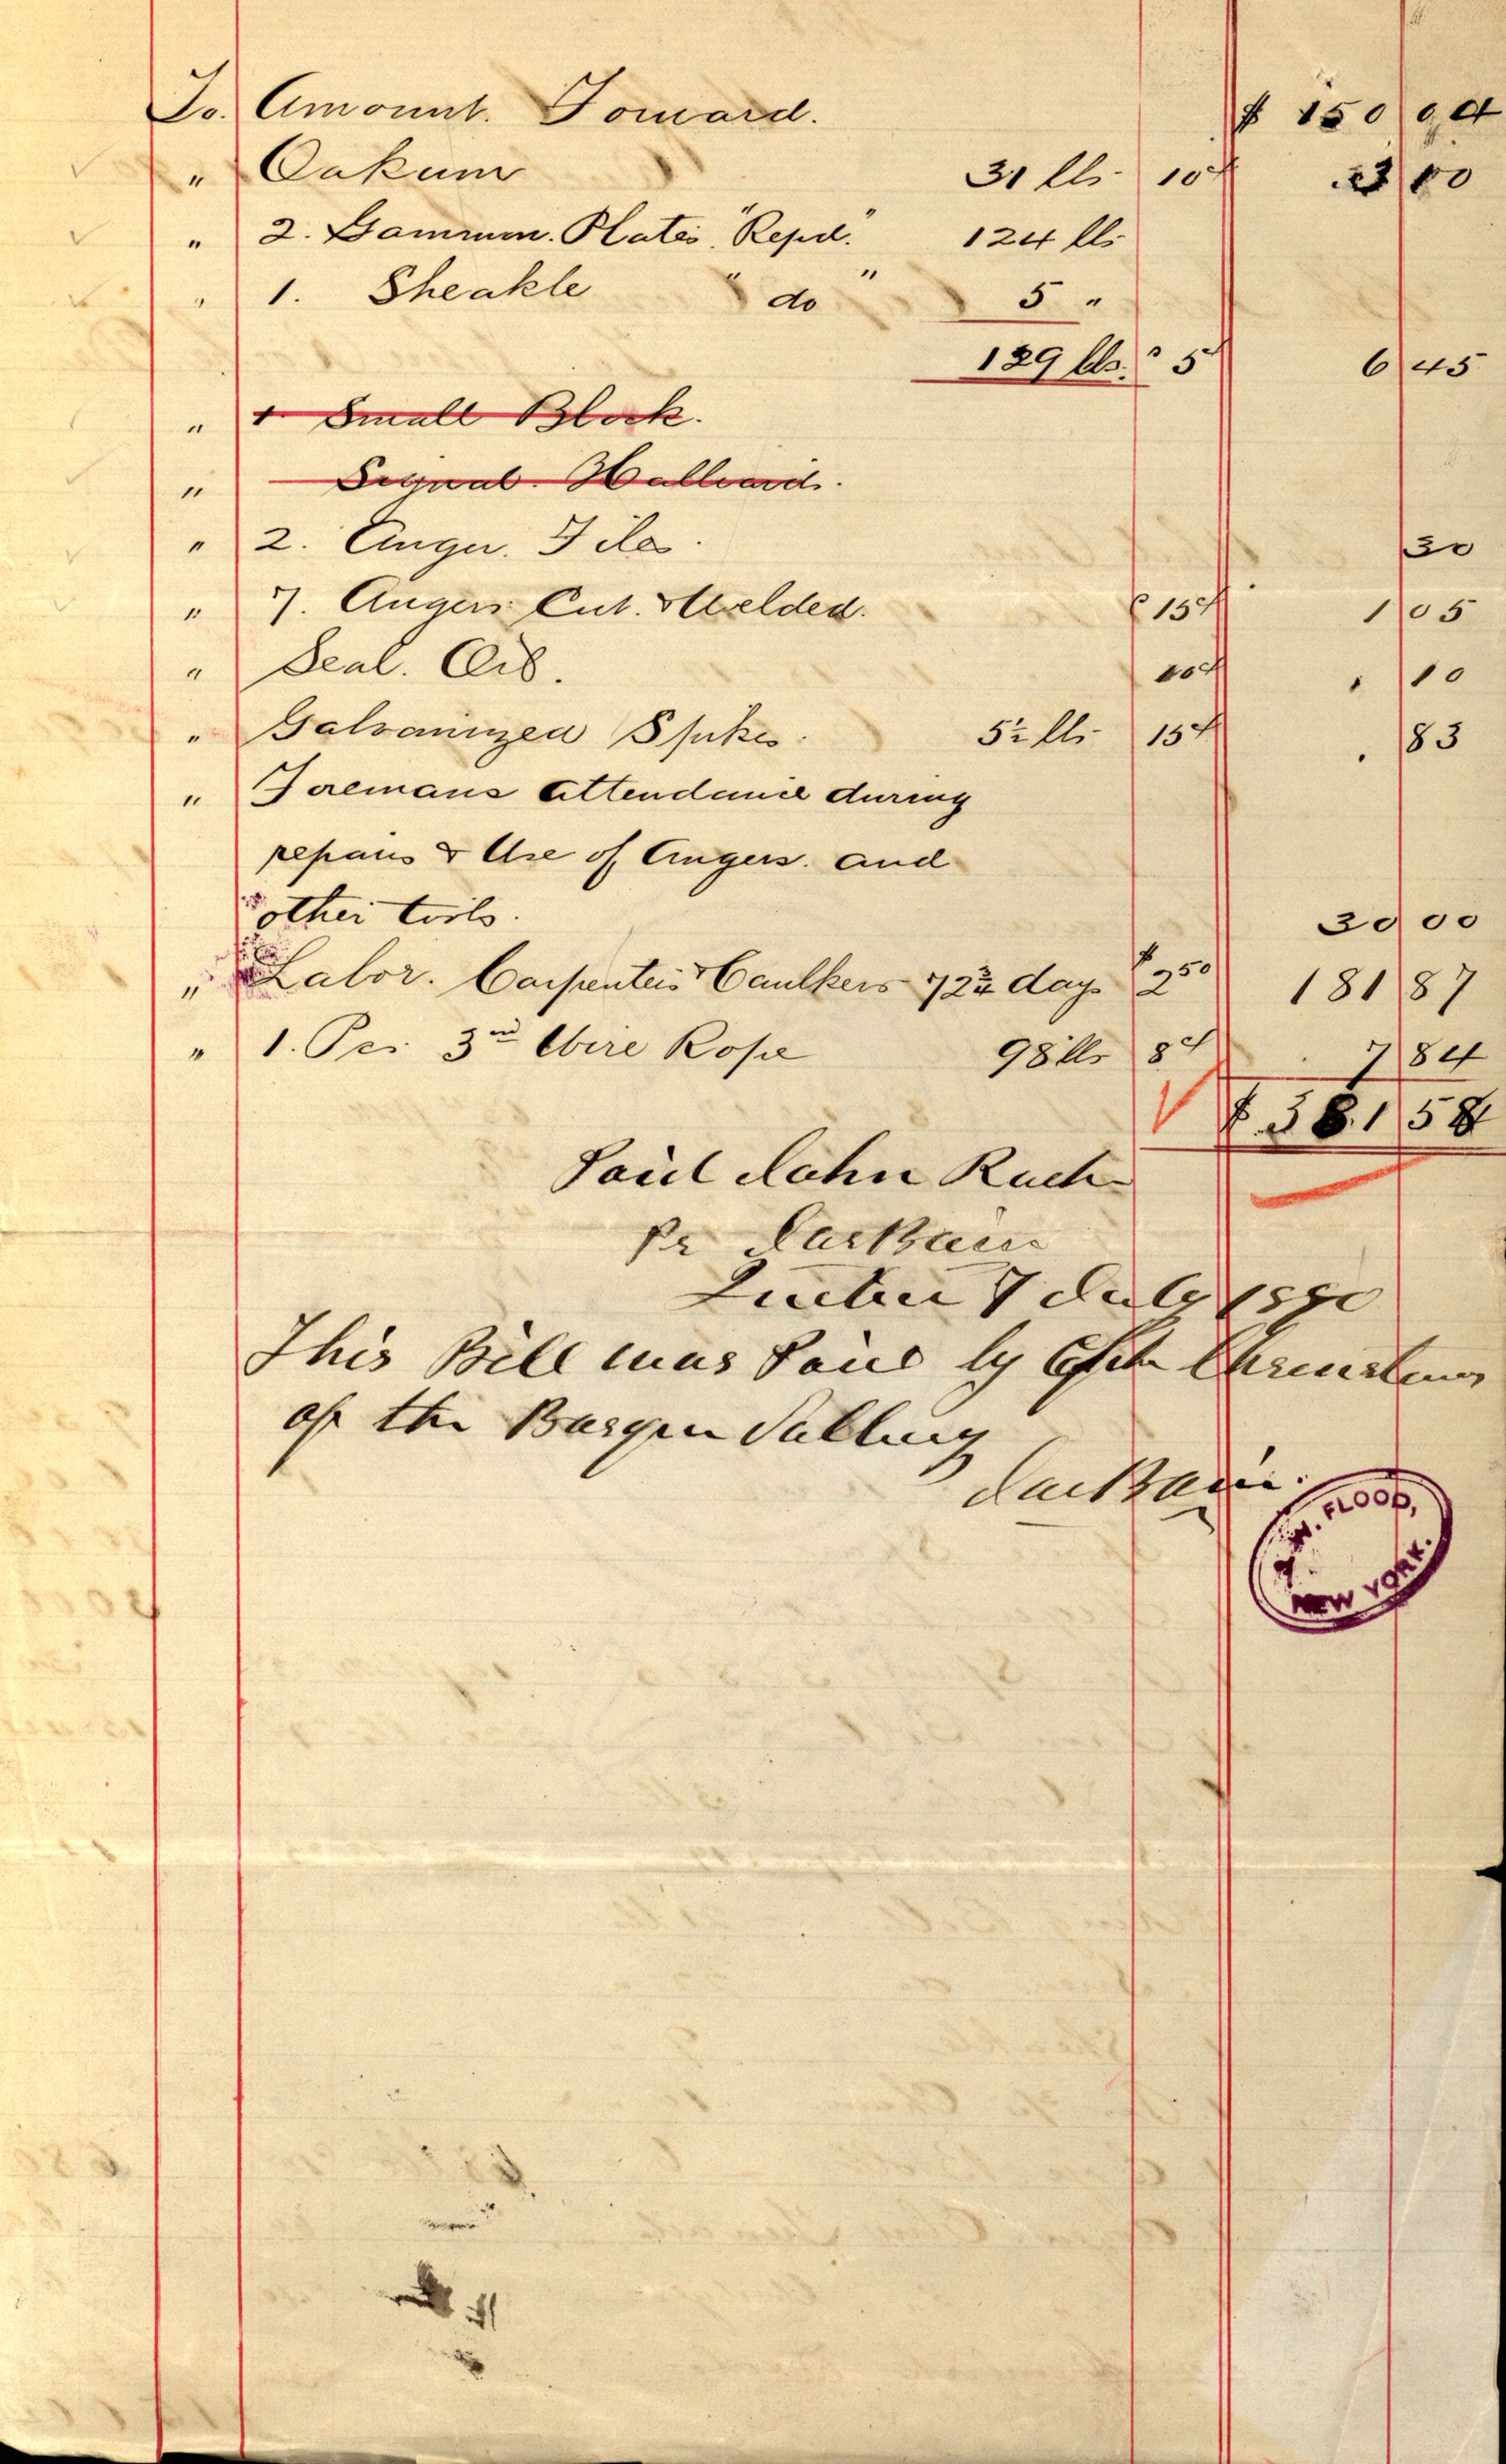 To Amount. Forward. $ 150 04
" Oakum 31 lbs 10¢ 3 10
" 2. Hammm. Plates "Repd." 124 lbs
" 1. Sheakle " do " 5 "
129 lbs. 5¢ 6 45
" 1 Small Block.
" Signal. Halliards.
" 2. Auger. Files. 30
" 7. Augers Cut. & Welded. 15¢ 1 05
" Seal. Oil. 10¢ 10
" Galvanized Spikes. 5½ lbs 15¢ 83
" Foremans Attendance during
repairs & Use of Augers. and
other tools. 30 00
" Labor. Carpenters & Caulkers 72¾ days $2 50 181 87
" 1. Pce 3 in Wire Rope 98 lbs 8¢ 7 84
$ 381 58
Paid John Ruch
pr
7 July 1880
This Bill was Paid by Capt
of the Barque
W. FLOOD,
NEW YORK.